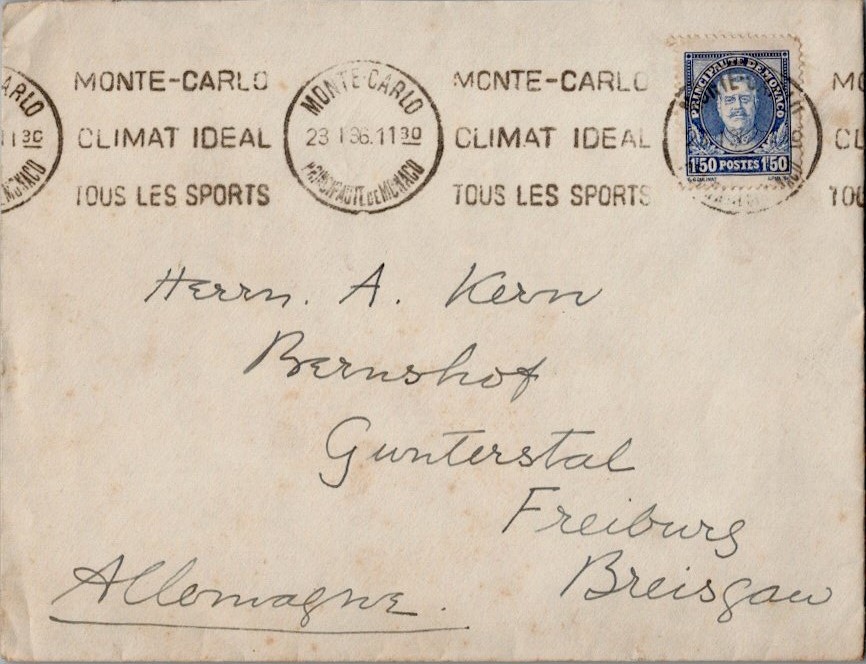 MONTE-CARLO
CLIMAT IDEAL
TOUS LES SPORTS
MONTE-CARLO
23 I 36.11 30
PRINCIPAUTE DE MONACO
MONTE-CARLO
CLIMAT IDEAL
TOUS LES SPORTS
PRINCIPAUTE DE MONACO
1f50 POSTES 1f50
Herrn. A. Kern
Bernshof
Gunterstal
Freiburg
Breisgau
Allemagne.